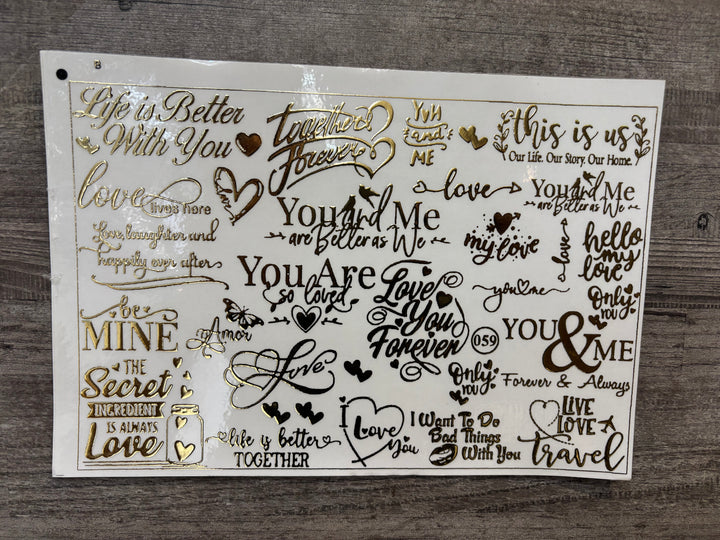 B
Life is Better
With You
together
Forever
YOU
and
ME
this is us
Our Life. Our Story. Our Home.
love
lives here
love
love
You and Me
are Better as We
You and Me
are Better as We
my love
love
hello
my
love
Love, laughter and
happily ever after
You Are
so loved
Love
You
Forever
you me
Only
YOU
be
MINE
Amor
059
YOU
&
ME
THE
Secret
INGREDIENT
IS ALWAYS
Love
Love
Only
YOU
Forever & Always
life is better
TOGETHER
I
Love
You
I Want To Do
Bad Things
With You
LIVE
LOVE
travel